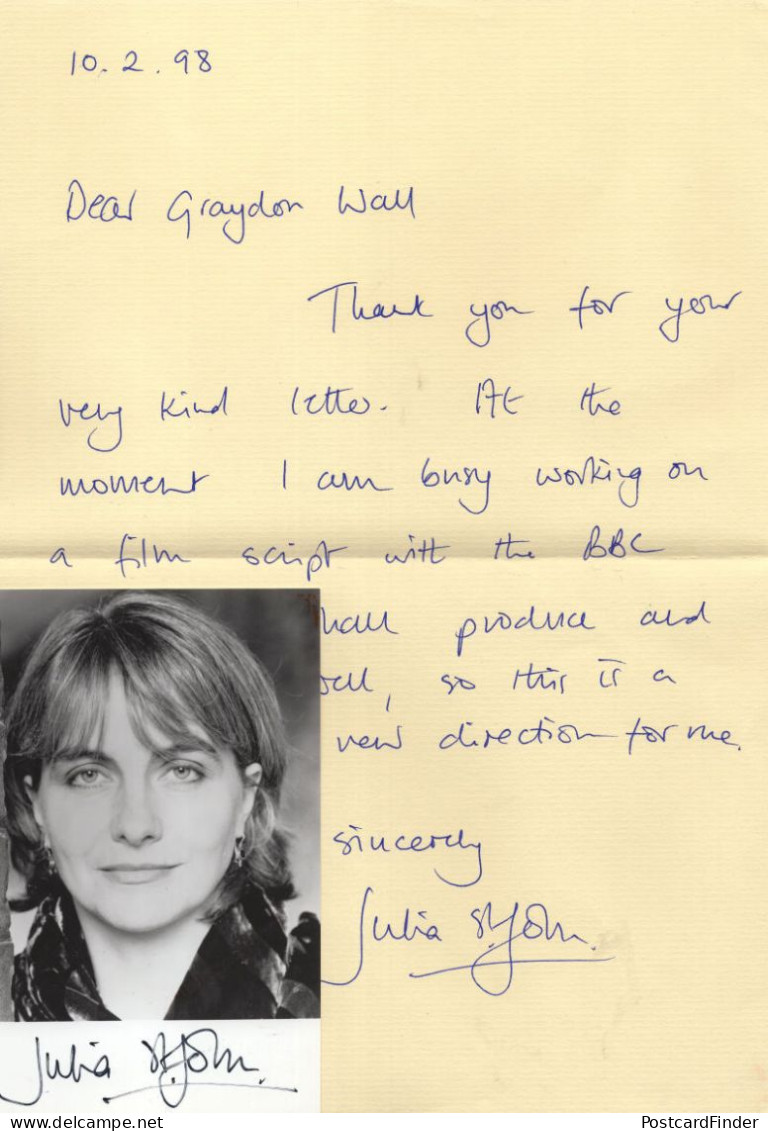 10.2.98
Dear Graydon Wall
Thank you for your
very kind letter. At the
moment I am busy working on
a film script with the BBC
produce and
so this is a
new direction for me.
sincerely
Julia St. John.
Julia St. John.
delcampe.net
PostcardFinder